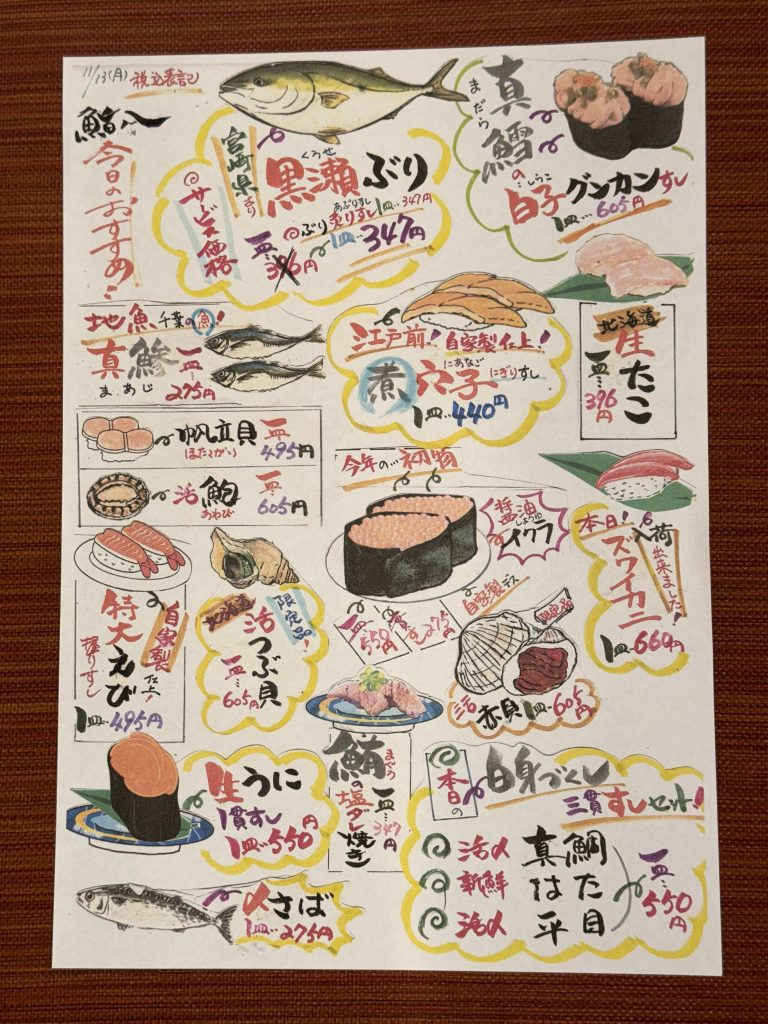 11/13(月) 税込表記
鮨八
今日のおすすめ!
宮崎県より
くろせ
黒瀬ぶり
サービス価格
ぶり
あぶりすし
炙りすし 1皿…347円
一皿…
396円
1皿…347円
まだら
真鱈の
しらこ
白子グンカンすし
1皿…605円
地魚 千葉の魚!
真鯵
まあじ
一皿…
275円
江戸前! 自家製仕上!
にあなご
煮穴子 にぎりすし
1皿…440円
北海道
生たこ
一皿…396円
帆立貝
ほたてがい
一皿…
495円
活鮑
あわび
一皿…
605円
今年の…初物
醤油
しょうゆ
イクラ
一皿…550円
275円
本日!入荷出来ました!
ズワイカニ
1皿…660円
自家製仕上!
特大えび
握りすし
1皿…495円
北海道
限定品!
活つぶ貝
一皿…605円
自家製デス
限定品
活赤貝 1皿…605円
生うに
1貫すし
1皿…550円
まぐろ
鮪の塩ダレ焼き
一皿…347円
本日の
白身づくし
三貫すしセット!
活〆 真鯛
新鮮 はた
活〆 平目
一皿…
550円
〆さば
1皿…275円